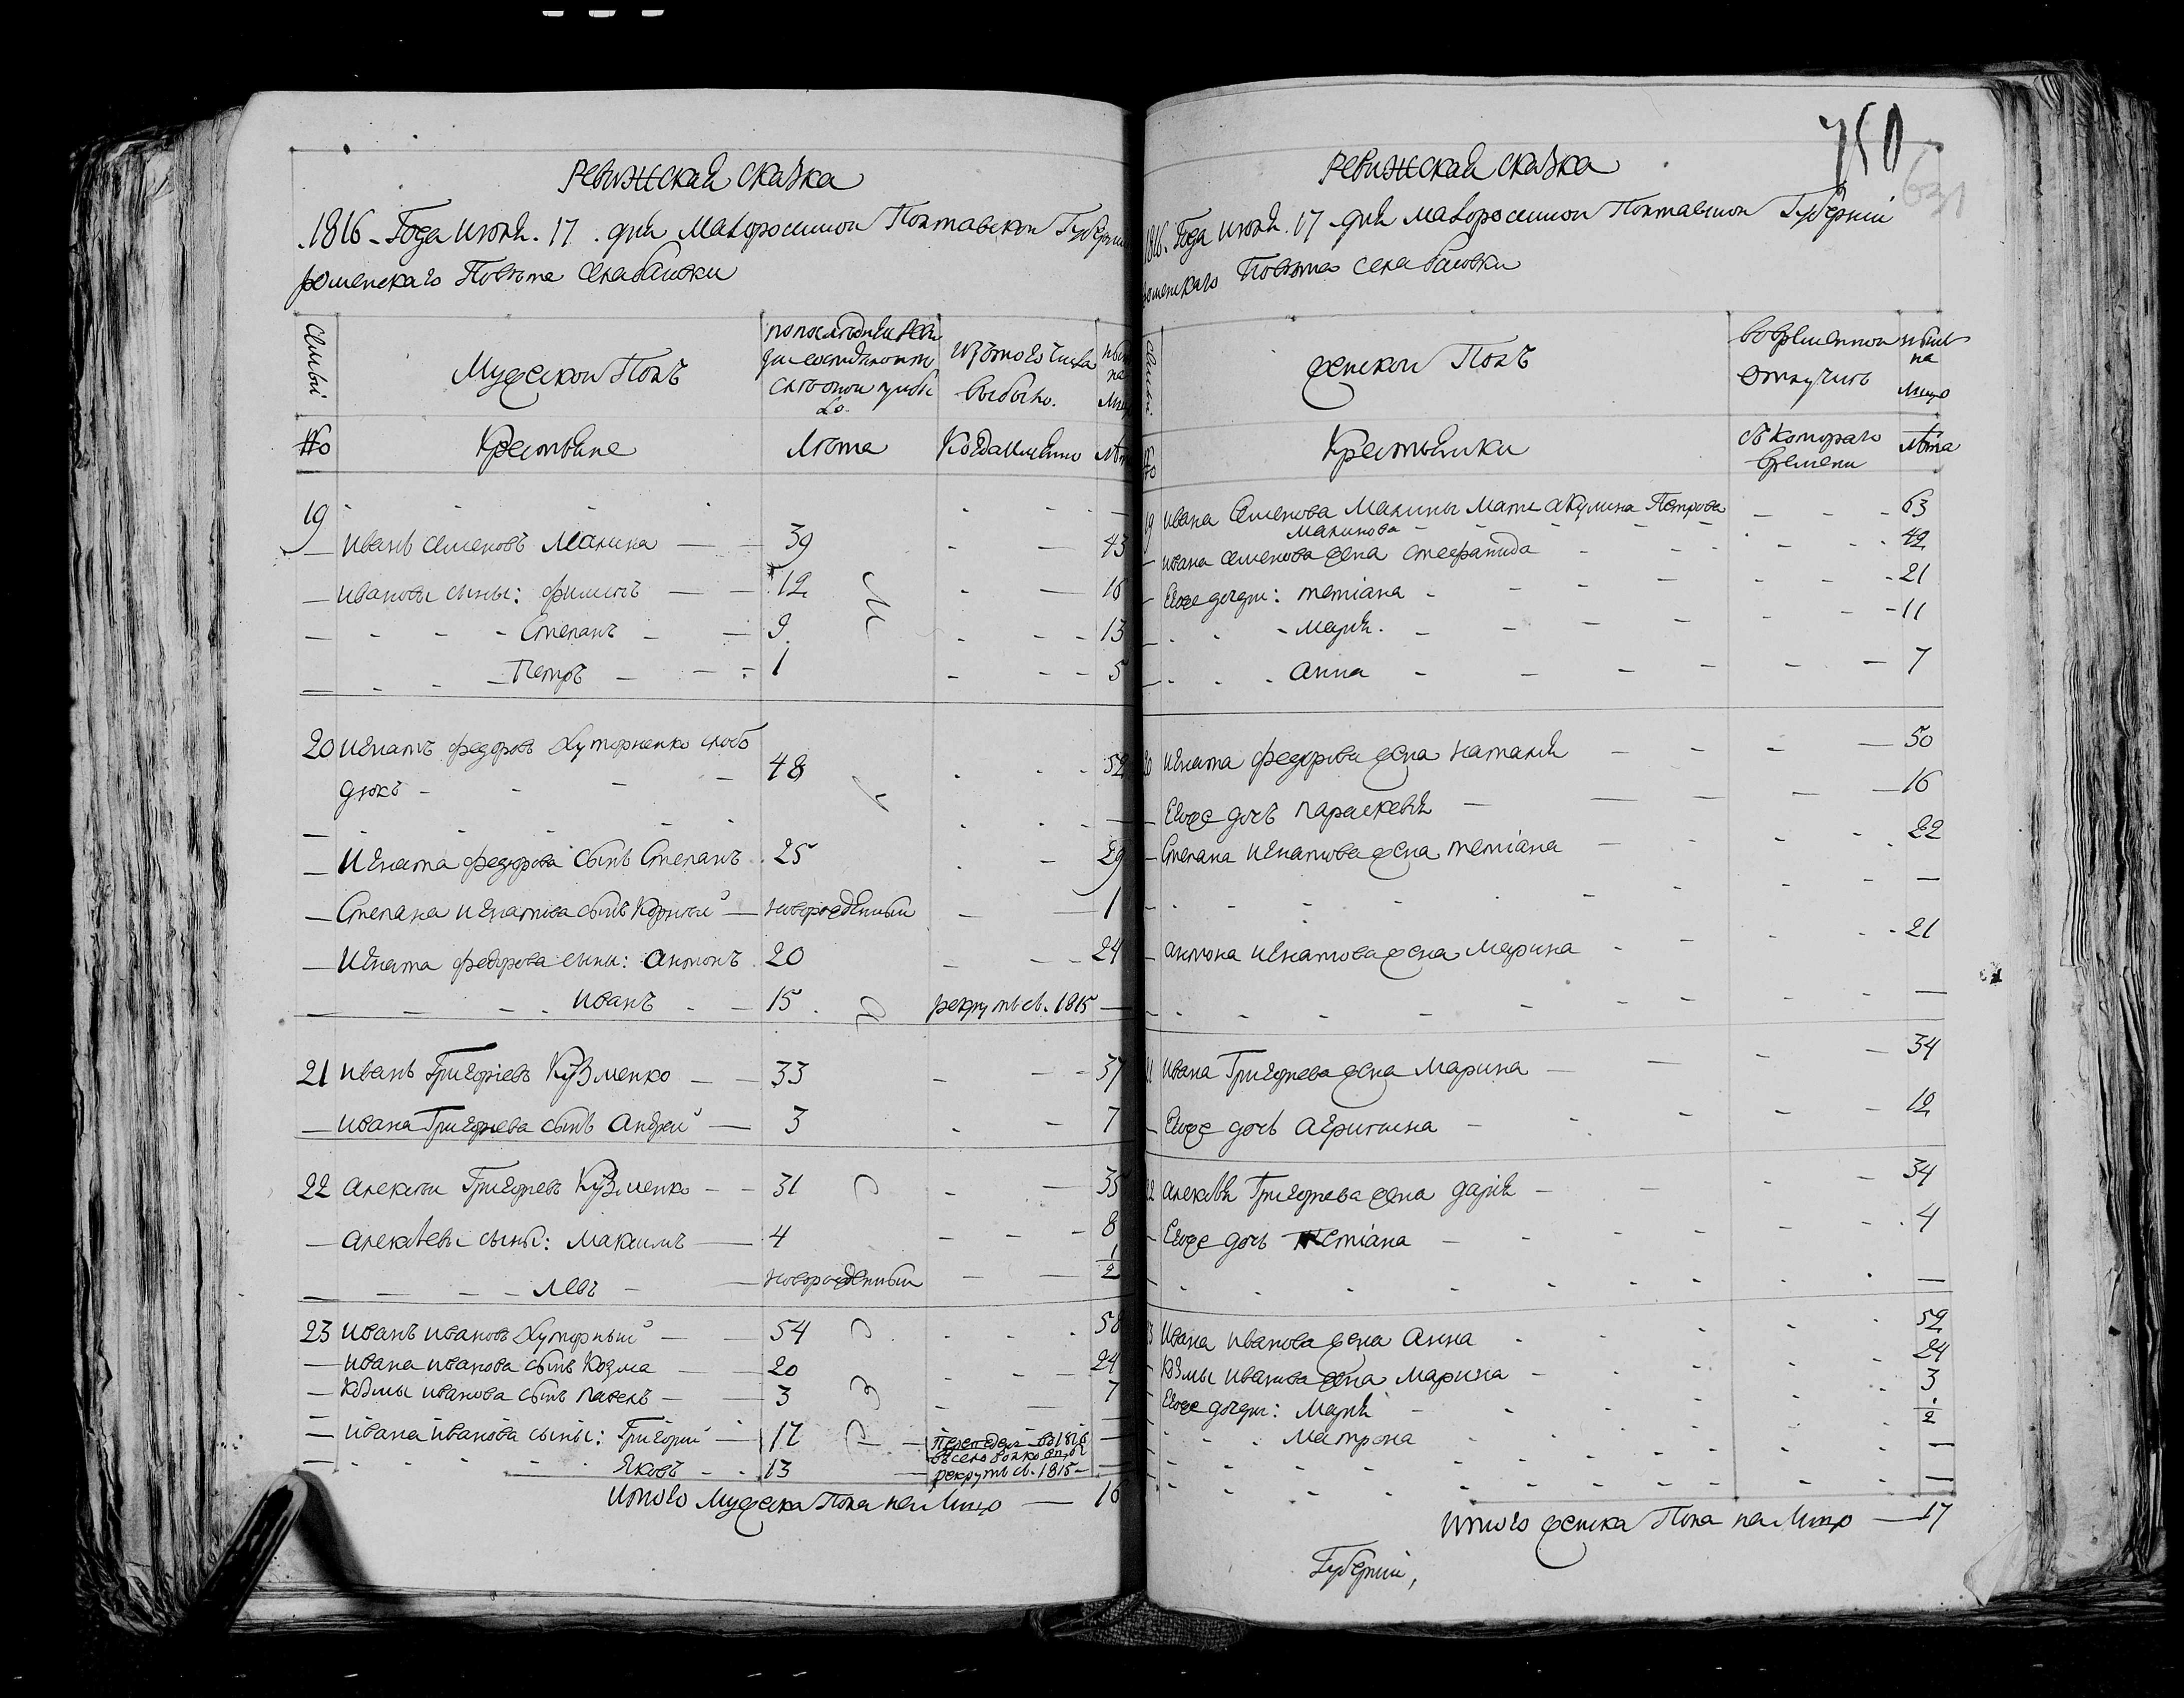 Ревижская сказка
1816. Года июня. 17. дня Малоросийской Полтавской Губернии
роменскаго Повѣта села басовки
Семьи
Мужеской Полъ
по последней
ревизии состояло и
после оной прибы
ло.
Изътого числа
выбыло.
ныне
на
лицо
№
Крестьяне
Лѣта
Когда имянно
лѣта
19
Иванъ Семеновъ Малина 39 43
Ивановы сыны: филипъ 12 16
Степанъ 9 13
Петръ 1 5
20 Игнатъ федоровъ Хуторненко слобо
дюкъ 48 52
Игната федорова сынъ Степанъ 25 29
Степана Игнатова сынъ Корней новорожденный 1
Игната федорова сыны: Антонъ 20 24
Иванъ 15 рекрутъ съ. 1815
21 Иванъ Григорьевъ Кузменко 33 37
Ивана Григорьева сынъ Андрей 3 7
22 Алексей Григорьевъ Кузменко 31 35
Алексеевы сыны: Максимъ 4 8
Левъ новорожденный 1/2
23 Иванъ Ивановъ Хуторный 54 58
Ивана Иванова сынъ Козма 20 24
Козмы Иванова сынъ Павелъ 3 7
Ивана Иванова сыны: Григорий 17 Переведен во 1816
въ село
Яковъ 13 рекрутъ съ. 1815
Итого Мужеска Пола на Лицо 16
750
631
Ревижская сказка
1816. Года июня. 17 дня Малоросийской Полтавской Губернии
роменскаго Повѣта села басовки
Семьи.
Женской Полъ
Вовременной
отлучкѣ
ныне
на
лицо
№
Крестьянки
съ котораго
времени
лѣта
19 Ивана Семенова Малины Мать Акулина Петрова 63
Малинова
Ивана Семенова жена Стефанида 42
Егоже дочери: Тетиана 21
Мария. 11
Анна 7
20 Игната федорова жена Наталия 50
Егоже дочь Параскевия 16
Степана Игнатова жена Тетиана 22
Антона Игнатова жена Марина 21
21 Ивана Григорьева жена Марина 34
Егоже дочь Агрипина 12
22 Алексея Григорьева жена Дария 34
Егоже дочь Тетиана 4
23 Ивана Иванова жена Анна 52
Козмы Иванова жена Марина 24
Егоже дочери: Мария 3
Матрона 1/2
Итого женска Пола на Лицо 17
Губернии,